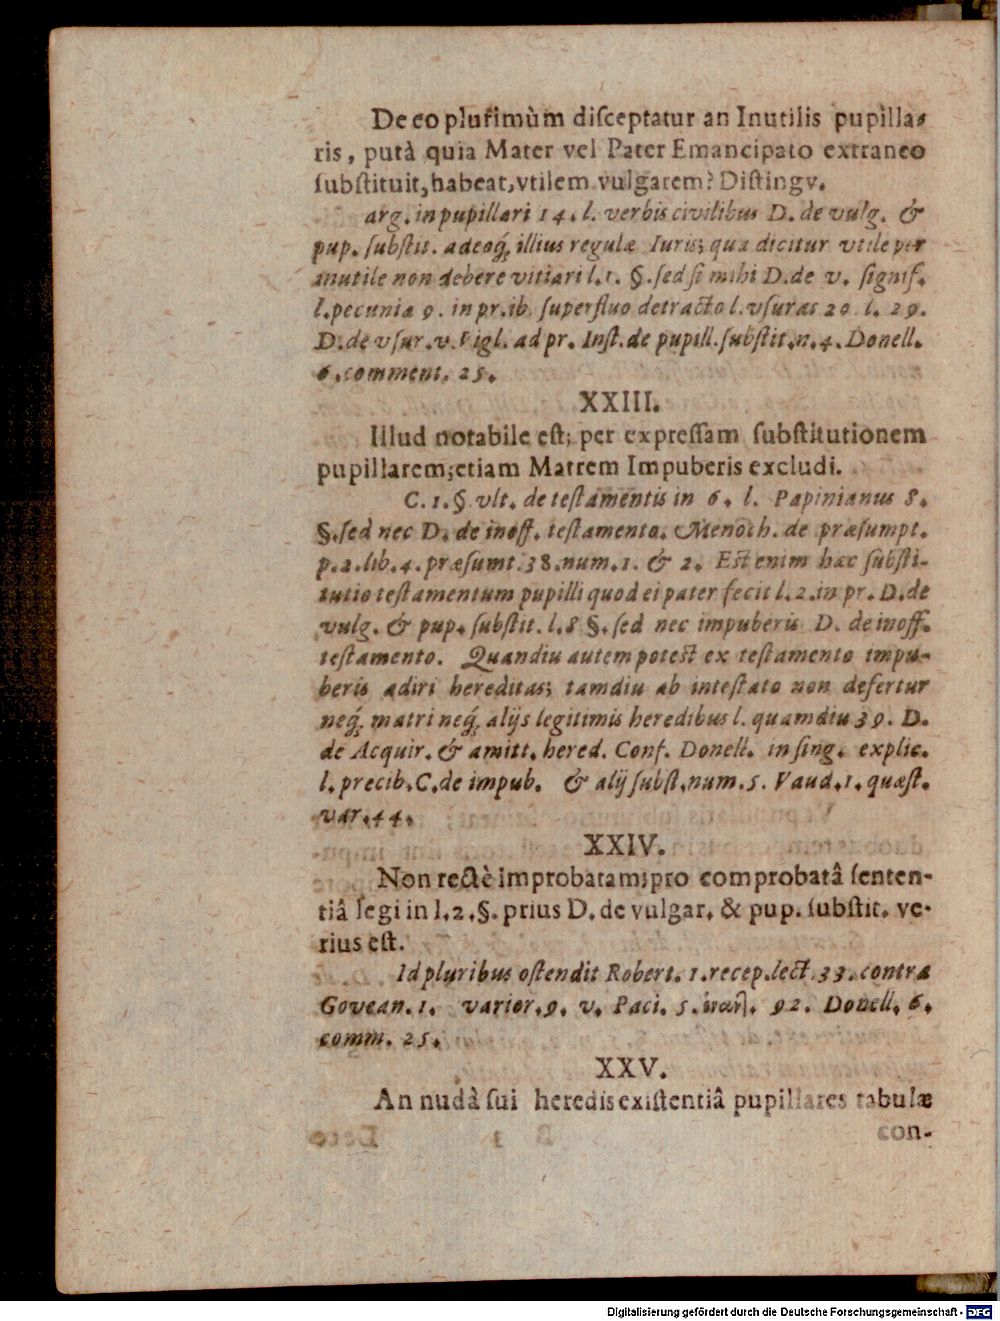 De eo plurimùm disceptatur an Inutilis pupilla-
ris, putà quia Mater vel Pater Emancipato extraneo
substituit, habeat, vtilem vulgarem? Distingv.
arg. in pupillari 14. l. verbis civilibus D. de vulg. &
pup. substit. adeoq; illius regulæ Iuris; qua dicitur vtile per
inutile non debere vitiari l. 1. §. sed si mihi D. de v. signif.
l. pecuniæ 9. in pr. ib. superfluo detracto l. vsuras 20 l. 29.
D. de vsur. v. Vigl. ad pr. Inst. de pupill. substit. n. 4. Donell.
6. comment. 25.
XXIII.
Illud notabile est; per expressam substitutionem
pupillarem; etiam Matrem Impuberis excludi.
C. 1. §. vlt. de testamentis in 6. l. Papinianus 8.
§. sed nec D. de inoff. testamento. Menoch. de præsumpt.
p. 2. lib. 4. præsumt. 38. num. 1. & 2. Est enim hæc substi-
tutio testamentum pupilli quod ei pater fecit l. 2. in pr. D. de
vulg. & pup. substit. l. 8 §. sed nec impuberis D. de inoff.
testamento. Quandiu autem potest ex testamento impu-
beris adiri hereditas; tamdiu ab intestato non defertur
neq; matri neq; alijs legitimis heredibus l. quamdiu 39. D.
de Acquir. & amitt. hered. Conf. Donell. in sing. explic.
l. precib. C. de impub. & alij subst. num. 5. Vaud. 1. quæst.
var. 44.
XXIV.
Non rectè improbatam; pro comprobatâ senten-
tiâ legi in l. 2. §. prius D. de vulgar. & pup. substit. ve-
rius est.
Id pluribus ostendit Robert. 1. recep. lect. 33. contra
Govean. 1. varior. 9. v. Paci. 5. 92. Donell. 6.
comm. 25.
XXV.
An nudâ sui heredis existentiâ pupillares tabulæ
con-
Digitalisierung gefördert durch die Deutsche Forschungsgemeinschaft - DFG